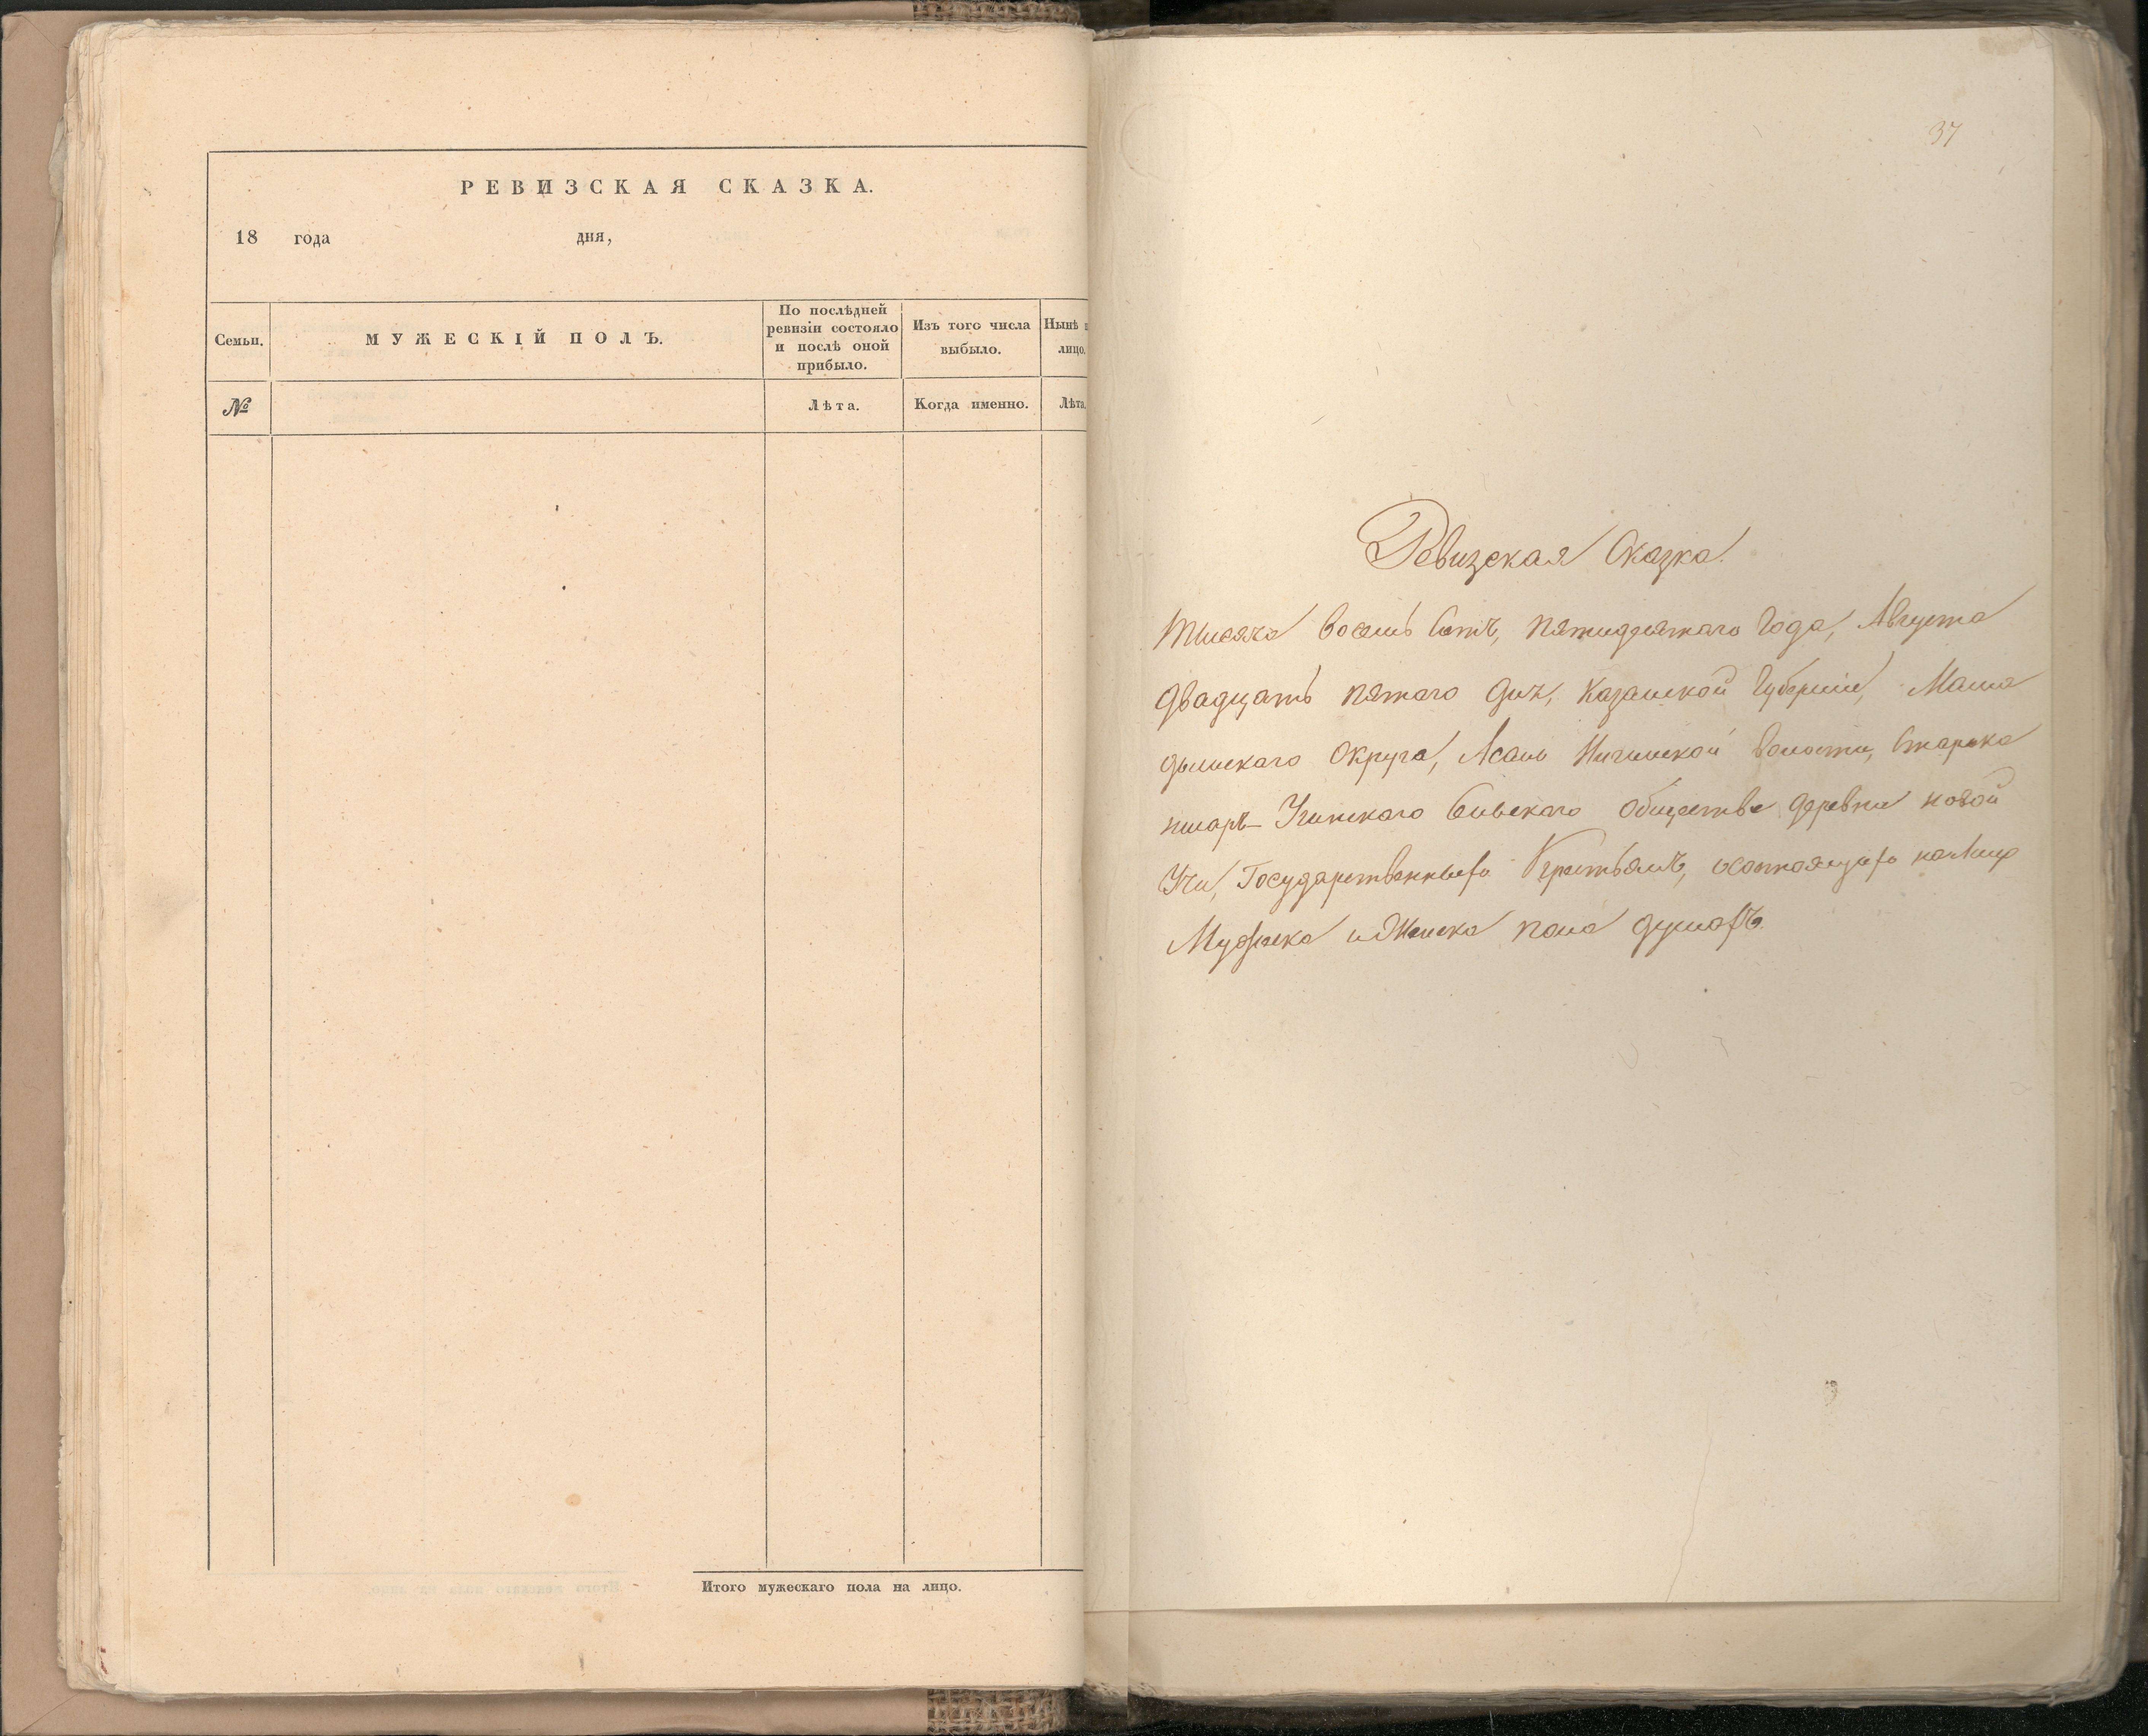 РЕВИЗСКАЯ СКАЗКА.
18 года дня,
Семьи.
МУЖЕСКІЙ ПОЛЪ.
По послѣдней
ревизіи состояло
и послѣ оной
прибыло.
Изъ того числа
выбыло.
Нынѣ н
лицо.
№
Лѣта.
Когда именно.
Лѣта.
Итого мужескаго пола на лицо.
37
Ревизская Сказка.
Тысяча восемь сотъ, пятидесятаго Года, Августа
двадцать пятаго дня, Казанской Губерніи, Мама
дышскаго Округа, Асань волости, Старока
Учинскаго Сельскаго Общества деревни новой
Учи, Государственныхъ Крестьянъ, о состоящихъ налицо
Мужеска и Женска пола душахъ